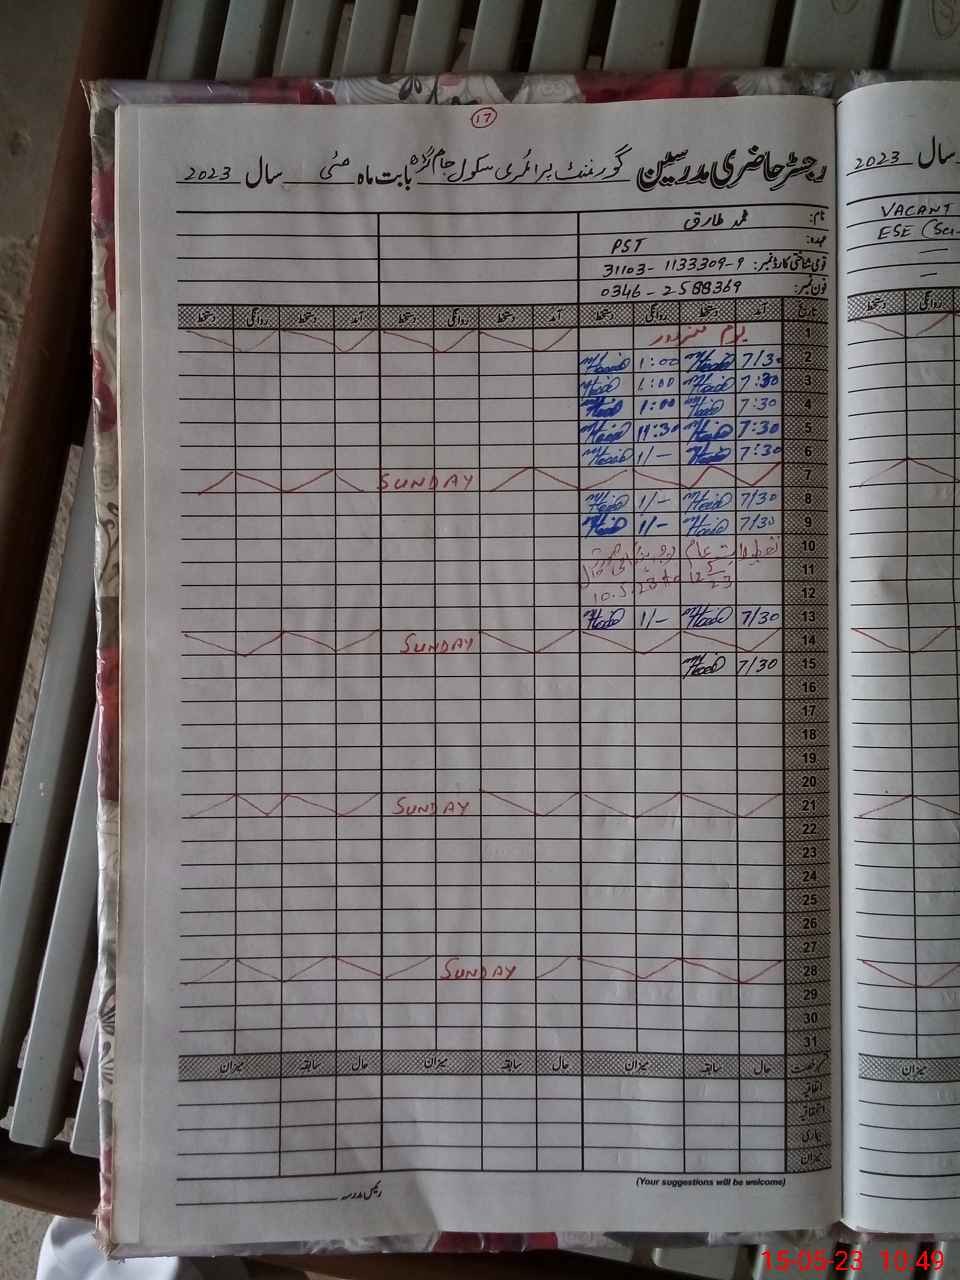 17
رجسٹر حاضری مدرسین گورنمنٹ پرائمری سکول جام بابت ماہ مئی سال 2023
نام: محمد طارق
عہدہ: PST
قومی شناختی کارڈ نمبر: 31103-1133309-9
فون نمبر: 0346-2588369
تاریخ آمد دستخط روانگی دستخط آمد دستخط روانگی دستخط آمد دستخط روانگی دستخط
1 یوم مزدور
2 7/30 1:00
3 7:30 1:00
4 7:30 1:00
5 7:30 11:30
6 7:30 1/-
7 SUNDAY
8 7/30 1/-
9 7/30 1/-
10 تعطیلات عام
11
12 10.5.23 to 12 5/23
13 7/30 1/-
14 SUNDAY
15 7/30
16
17
18
19
20
21 SUNDAY
22
23
24
25
26
27
28 SUNDAY
29
30
31
حال سابقہ میزان حال سابقہ میزان حال سابقہ میزان
اتفاقیہ
استحقاقیہ
بیماری
میزان
(Your suggestions will be welcome)
رئیس مدرسہ
سال 2023
VACANT
ESE (Sci-
روانگی دستخط
میزان
15-05-23 10:49